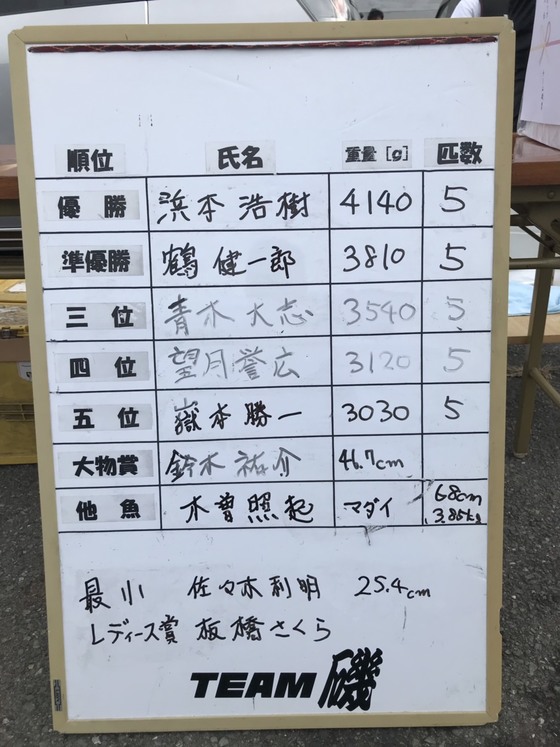 順位 氏名 重量[g] 匹数
優勝 浜本浩樹 4140 5
準優勝 鶴健一郎 3810 5
三位 青木大志 3540 5
四位 望月誉広 3120 5
五位 嶽本勝一 3030 5
大物賞 鈴木祐介 46.7cm
他魚 木曽照起 マダイ 68cm 3.85kg
最小 佐々木利明 25.4cm
レディース賞 板橋さくら
TEAM 磯